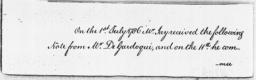 On the 1st July 1786 Mr. Jay received the following
Note from Mr. De Gardoqui, and on the 11th he com
mu